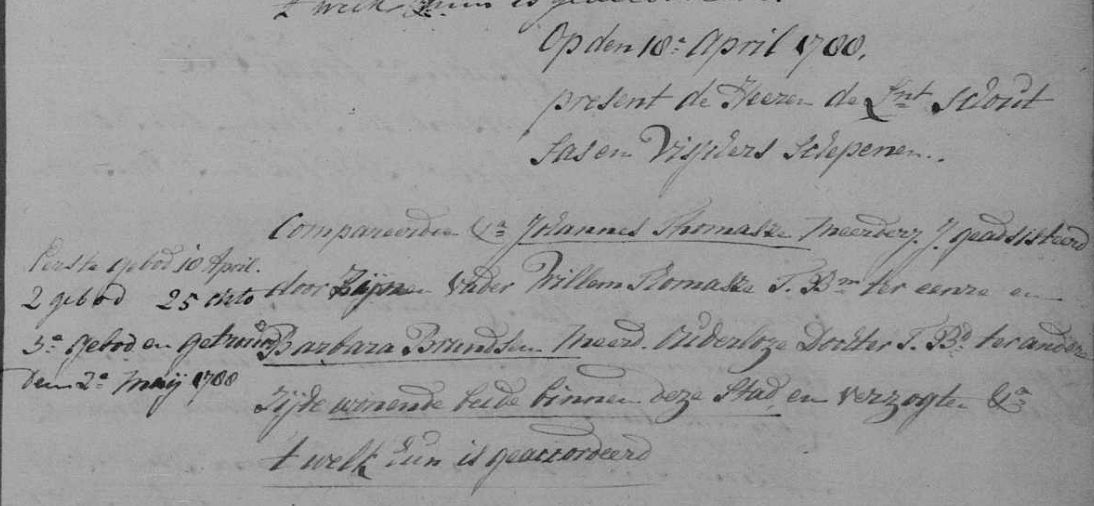 t welk hun is geaccordeerd.
Op den 18e April 1788.
present de Heeren de Lnt Schout
Sas en Visschers Schepenen.
Compareerden &a Johannes Thomasze meerderj. J. geadsisteerd
door Zijnen Vader Willem Thomasze T. Bm ter eenre en
Barbara Brundsen meerd. Ouderloze Dochter T. Bd ter andere
Zijde wonende beide binnen deze Stad, en verzogten &a
t welk hun is geaccordeerd
Eerste gebod 18 April.
2 gebod 25 dito
3e gebod en getrouwd
den 2e Maij 1788